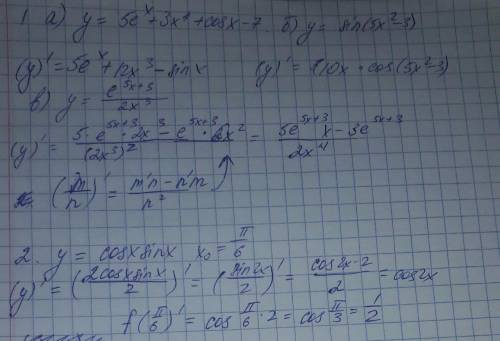 1 а) y = 5e^x + 3x^4 + cosx - 7. б) y = sin(5x² - 3)
(y)' = 5e^x + 12x³ - sinx (y)' = 10x · cos(5x² - 3)
в) y = e^(5x+3) / 2x³
(y)' = (5 · e^(5x+3) · 2x³ - e^(5x+3) · 6x²) / (2x³)² = (5e^(5x+3) x - 3e^(5x+3)) / 2x⁴
(m/n)' = (m'n - n'm) / n²
2. y = cosx sinx x₀ = π/6
(y)' = (2cosx sinx / 2)' = (sin2x / 2)' = cos2x · 2 / 2 = cos2x
f(π/6)' = cos π/6 · 2 = cos π/3 = 1/2